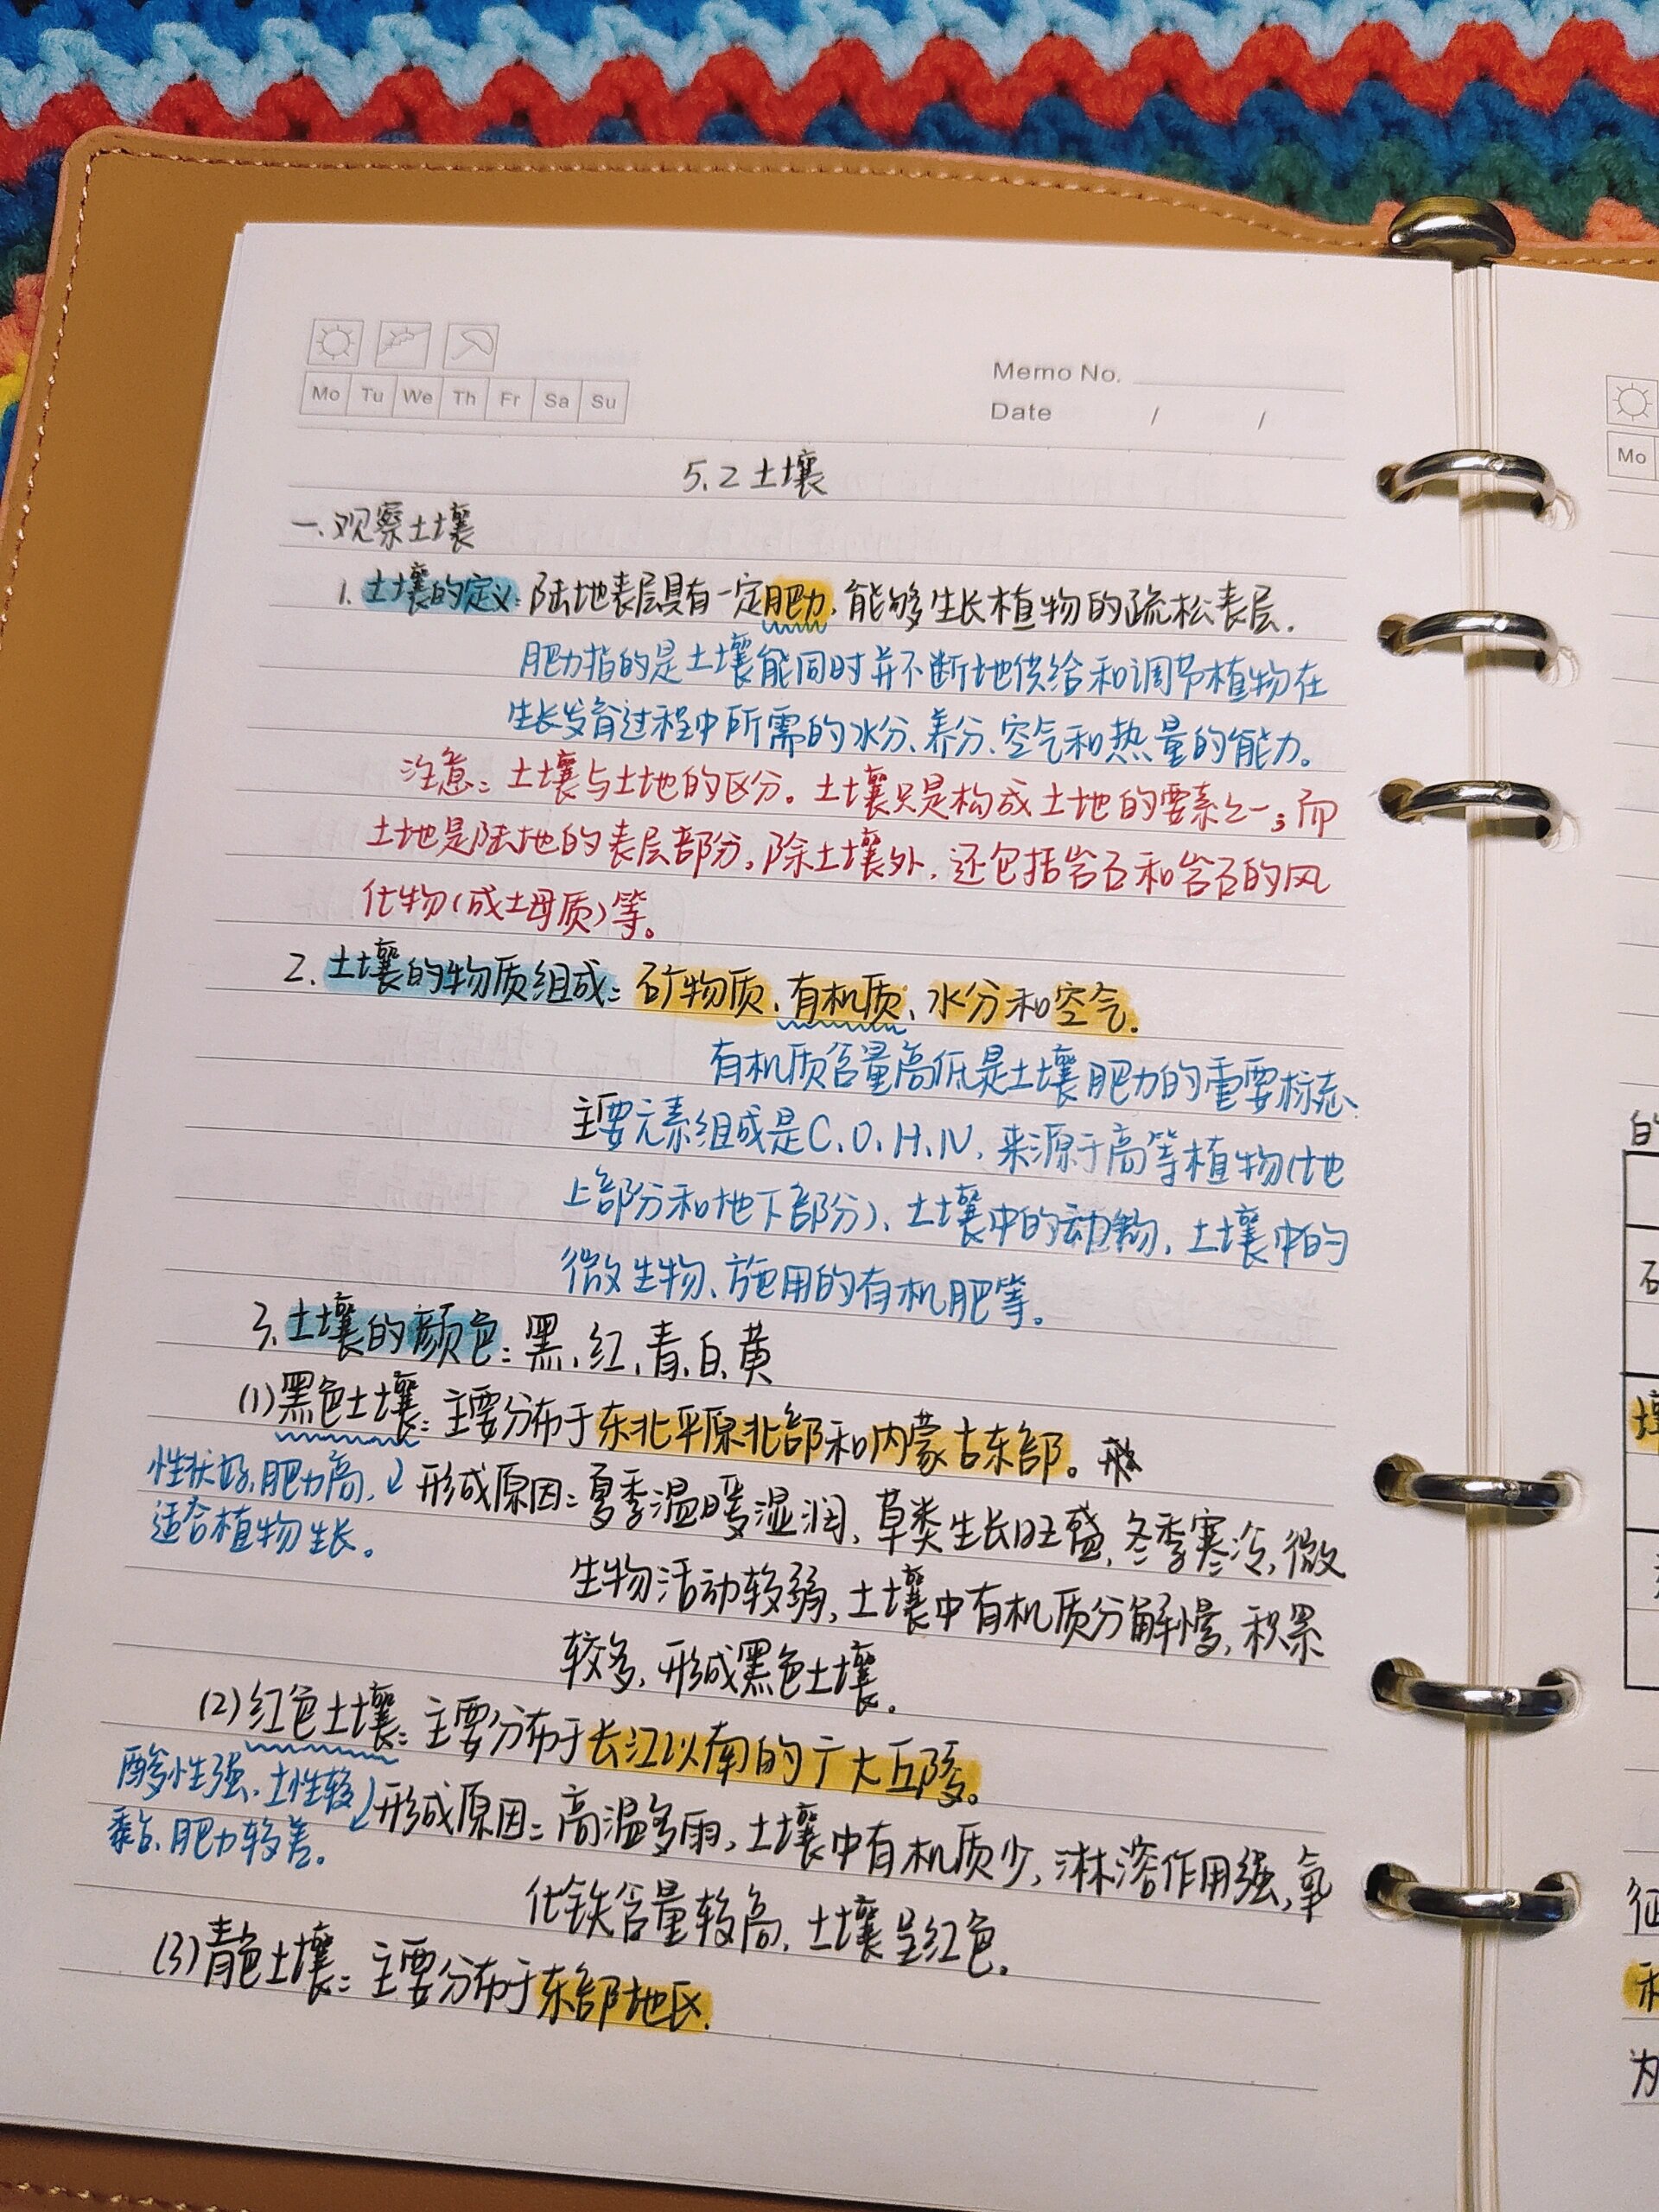 Mo Tu We Th Fr Sa Su
Memo No.
Date / /
5.2 土壤
一、观察土壤
1. 土壤的定义：陆地表层具有一定肥力，能够生长植物的疏松表层.
肥力指的是土壤能同时并不断地供给和调节植物在
生长发育过程中所需的水分、养分、空气和热量的能力。
注意：土壤与土地的区分。土壤只是构成土地的要素之一；而
土地是陆地的表层部分，除土壤外，还包括岩石和岩石的风
化物(成土母质)等。
2. 土壤的物质组成：矿物质、有机质、水分和空气.
有机质含量高低是土壤肥力的重要标志.
主要元素组成是C、O、H、N，来源于高等植物(地
上部分和地下部分)、土壤中的动物、土壤中的
微生物、施用的有机肥等。
3. 土壤的颜色：黑、红、青、白、黄
(1)黑色土壤：主要分布于东北平原北部和内蒙古东部。
性状好，肥力高，
适合植物生长。
形成原因：夏季温暖湿润，草类生长旺盛，冬季寒冷，微
生物活动较弱，土壤中有机质分解慢，积累
较多，形成黑色土壤。
(2)红色土壤：主要分布于长江以南的广大丘陵。
酸性强、土性较
黏、肥力较差。
形成原因：高温多雨，土壤中有机质少，淋溶作用强，氧
化铁含量较高，土壤呈红色。
(3)青色土壤：主要分布于东部地区.
Mo
壤
征
和
为